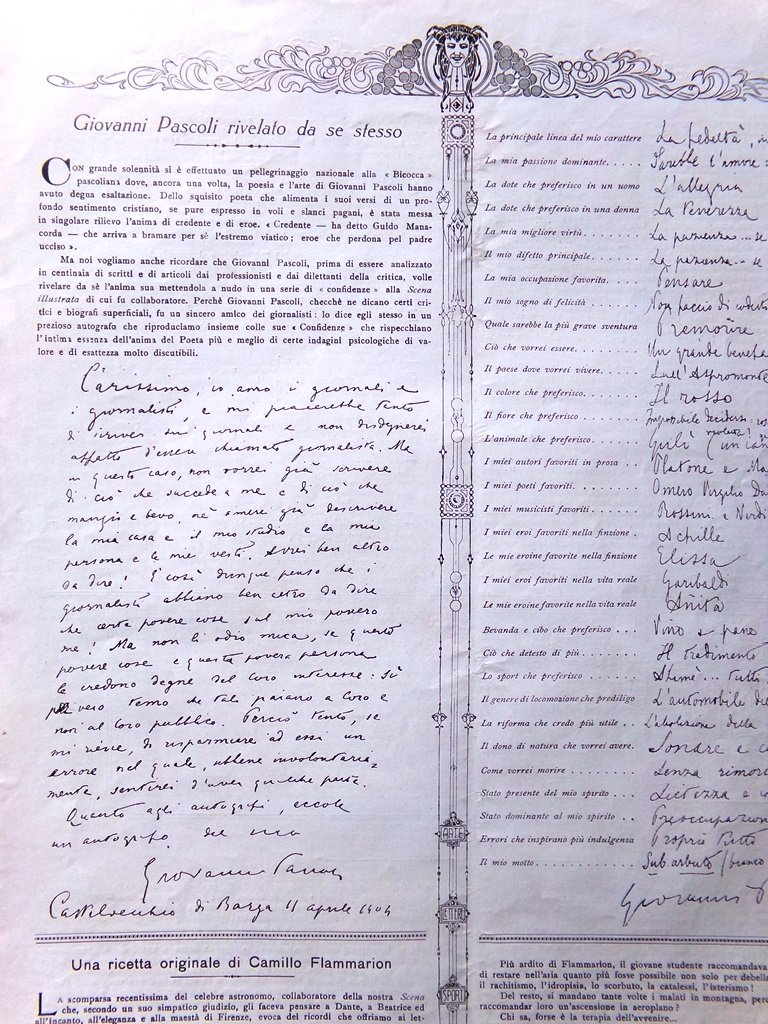 Giovanni Pascoli rivelato da se stesso
CON grande solennità si è effettuato un pellegrinaggio nazionale alla « Bicocca »
pascoliana dove, ancora una volta, la poesia e l'arte di Giovanni Pascoli hanno
avuto degna esaltazione. Dello squisito poeta che alimenta i suoi versi di un pro-
fondo sentimento cristiano, se pure espresso in voli e slanci pagani, è stata messa
in singolare rilievo l'anima di credente e di eroe. « Credente — ha detto Guido Mana-
corda — che arriva a bramare per sè l'estremo viatico ; eroe che perdona pel padre
ucciso ».
Ma noi vogliamo anche ricordare che Giovanni Pascoli, prima di essere analizzato
in centinaia di scritti e di articoli dai professionisti e dai dilettanti della critica, volle
rivelare da sè l'anima sua mettendola a nudo in una serie di « confidenze » alla Scena
illustrata di cui fu collaboratore. Perchè Giovanni Pascoli, checchè ne dicano certi cri-
tici e biografi superficiali, fu un sincero amico dei giornalisti : lo dice egli stesso in un
prezioso autografo che riproduciamo insieme colle sue « Confidenze » che rispecchiano
l'intima essenza dell'anima del Poeta più e meglio di certe indagini psicologiche di va-
lore e di esattezza molto discutibili.
Carissimo, io amo i giornali e
i giornalisti, e mi piacerebbe tanto
di scriver sui giornali e non disdegnerei
affatto d'esser chiamato giornalista. Ma
in questo caso, non vorrei già scrivere
di ciò che succede a me e di ciò che
mangio e bevo, nè amerei già descrivere
la mia casa e il mio studio e la mia
persona e le mie vesti. Avrei ben altro
da dire! E così dunque penso che i
giornalisti abbiano ben altro da dire
che certe povere cose sul mio povero
me! Ma non li odio mica, se queste
povere cose e questa povera persona
le credono degne del loro interesse: Sì
vero temo che tali paiano a loro e
non al loro pubblico. Perciò tento, se
mi riesce, di risparmiare ad essi un
errore nel quale, ebbene involontaria-
mente, sentirei d'aver qualche parte.
Quanto agli autografi, eccole
un autografo del suo
Giovanni Pascoli
Castelvecchio di Barga 11 aprile 1904
La principale linea del mio carattere La fedeltà,
La mia passione dominante. . . . . Sarebbe l'amore
La dote che preferisco in un uomo L'allegria
La dote che preferisco in una donna La tenerezza
La mia migliore virtù. . . . . . . La pazienza... se
Il mio difetto principale. . . . . . La pazienza... se
La mia occupazione favorita. . . . . Pensare
Il mio sogno di felicità . . . . . . . Non faccio di codesti
Quale sarebbe la più grave sventura Premorire
Ciò che vorrei essere. . . . . . . . Un grande
Il paese dove vorrei vivere. . . . . Sull'Aspromonte
Il colore che preferisco. . . . . . . Il rosso
Il fiore che preferisco . . . . . . . Impossibile decidersi:
L'animale che preferisco. . . . . . Gulì (un can
I miei autori favoriti in prosa . . Platone e Ma
I miei poeti favoriti. . . . . . . . Omero Virgilio Da
I miei musicisti favoriti. . . . . . Rossini e Verdi
I miei eroi favoriti nella finzione . Achille
Le mie eroine favorite nella finzione Elissa
I miei eroi favoriti nella vita reale Garibaldi
Le mie eroine favorite nella vita reale Anita
Bevanda e cibo che preferisco . . . Vino e pane
Ciò che detesto di più. . . . . . . Il tradimento
Lo sport che preferisco . . . . . . Ahimè... tutto
Il genere di locomozione che prediligo L'automobile de
La riforma che credo più utile . . L'abolizione della
Il dono di natura che vorrei avere. Sonare e c
Come vorrei morire . . . . . . . . Senza rimors
Stato presente del mio spirito. . . . Lietezza e
Stato dominante al mio spirito . . Preoccupazion
Errori che inspirano più indulgenza Proprio tutto
Il mio motto. . . . . . . . . . . . Sub arbuto
Giovanni P
ARTE
LETTERE
SPORT
Una ricetta originale di Camillo Flammarion
LA scomparsa recentissima del celebre astronomo, collaboratore della nostra Scena
che, secondo un suo simpatico giudizio, gli faceva pensare a Dante, a Beatrice ed
all'incanto, all'eleganza e alla maestà di Firenze, evoca dei ricordi che offriamo ai let-
Più ardito di Flammarion, il giovane studente raccomandava
di restare nell'aria quanto più fosse possibile non solo per debella
il rachitismo, l'idropisia, lo scorbuto, la catalessi, l'isterismo !
Del resto, si mandano tante volte i malati in montagna, perc
raccomandar loro un'ascensione in aeroplano ?
Chi sa, forse è la terapia dell'avvenire...